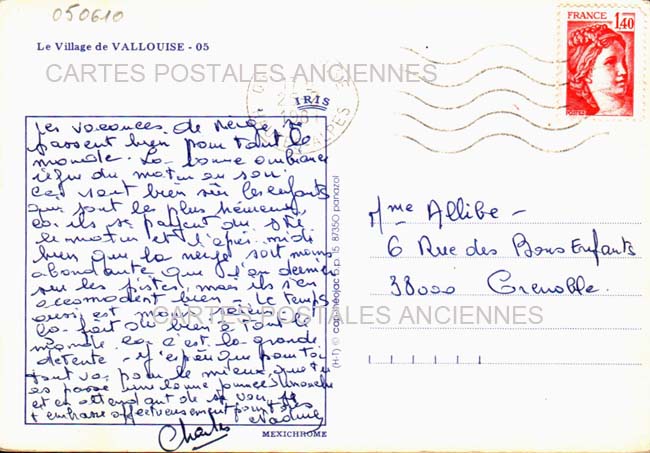 050610
Le Village de VALLOUISE - 05
CARTES POSTALES ANCIENNES
FRANCE
1,40
IRIS
Les vacances de neige se
passent bien pour tout le
monde. La bonne ambiance
règne du matin au soir.
C'est bien sûr les enfants
qui sont les plus heureux,
car ils se payent du ski
le matin et l'après-midi
bien que la neige soit moins
abondante que l'an dernier
sur les pistes, mais ils s'en
accomodent bien. Le temps
aussi est
ça fait du bien à tout le
monde car c'est la grande
détente. J'espère que pour toi
tout va pour le mieux, que tu
as passé une bonne
et en attendant de te voir, je
t'embrasse affectueusement
Charles Nadine
Mme Allibe -
6 Rue des Bons Enfants
38000 Grenoble.
CARTES POSTALES ANCIENNES
(H-T) © cap-théojac b.p. 15 87350 panazol
MEXICHROME